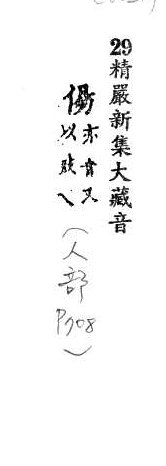 29精嚴新集大藏音
㑥 亦音又
以豉乀
(人部
P708)